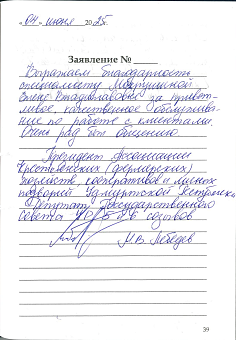 «04» июня 2025г.
Заявление №
Выражаем благодарность
специалисту
Елене Владиславовне за приветли-
ливое, качественное обслужива-
ние по работе с клиентами.
Очень рад был общению.
Президент Ассоциации
крестьянских (фермерских)
хозяйств, кооперативов и личных
подворий Удмуртской Республики
Депутат Государственного
Совета УР созывов
М.В. Лебедев
39